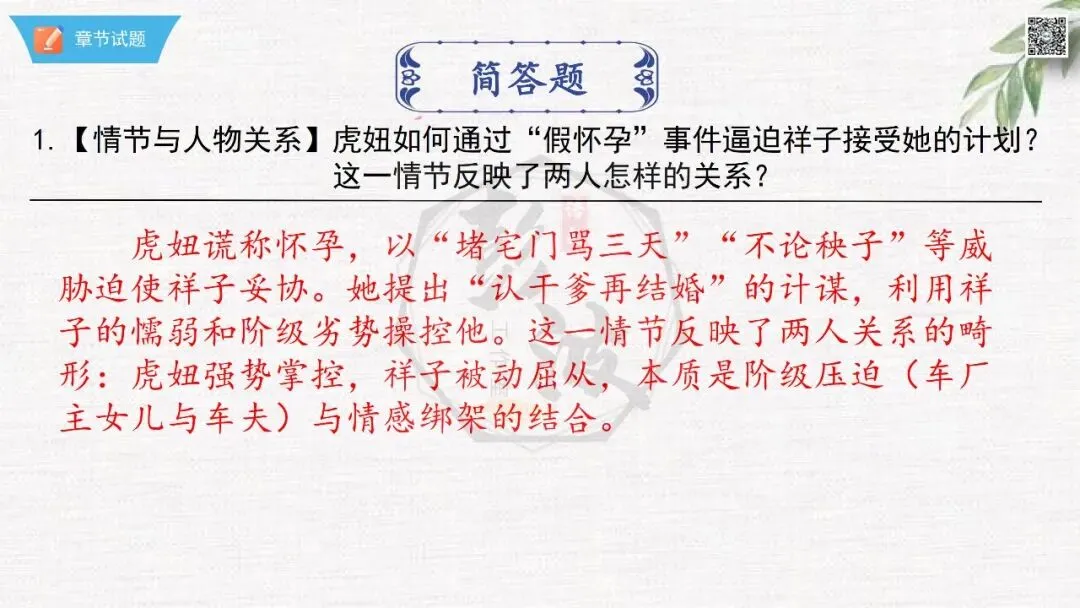 章节试题
简答题
1.【情节与人物关系】虎妞如何通过“假怀孕”事件逼迫祥子接受她的计划？
这一情节反映了两人怎样的关系？
虎妞谎称怀孕，以“堵宅门骂三天”“不论秧子”等威
胁迫使祥子妥协。她提出“认干爹再结婚”的计谋，利用祥
子的懦弱和阶级劣势操控他。这一情节反映了两人关系的畸
形：虎妞强势掌控，祥子被动屈从，本质是阶级压迫（车厂
主女儿与车夫）与情感绑架的结合。